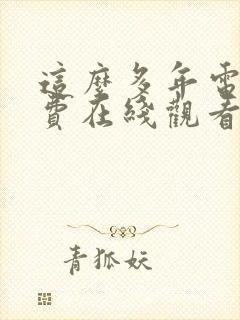 這麼多年電
費在綫觀看
青狐妖